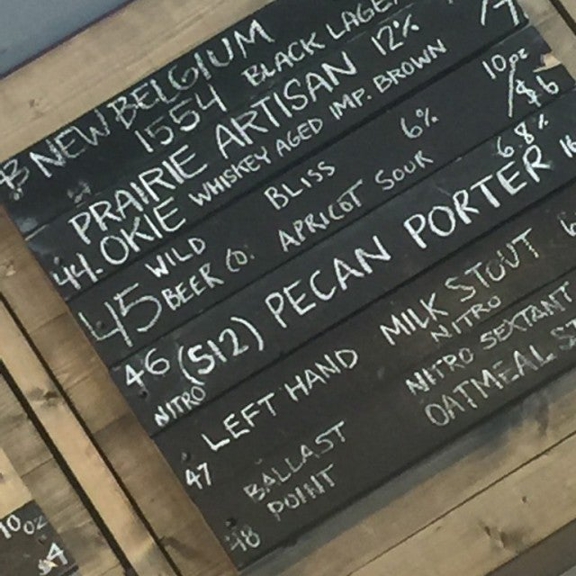 NEW BELGIUM
1554 BLACK LAGER
PRAIRIE ARTISAN 12%
44. OKIE WHISKEY AGED IMP. BROWN
10oz
/$6
45 WILD BEER CO. BLISS 6%
APRICOT SOUR
6.8%
46 (512) PECAN PORTER 16
NITRO
47 LEFT HAND MILK STOUT
NITRO
48 BALLAST POINT NITRO SEXTANT
OATMEAL
10oz
$4